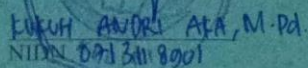 KUKUH ANDRI AKA, M.Pd.
NIDN 0713118901